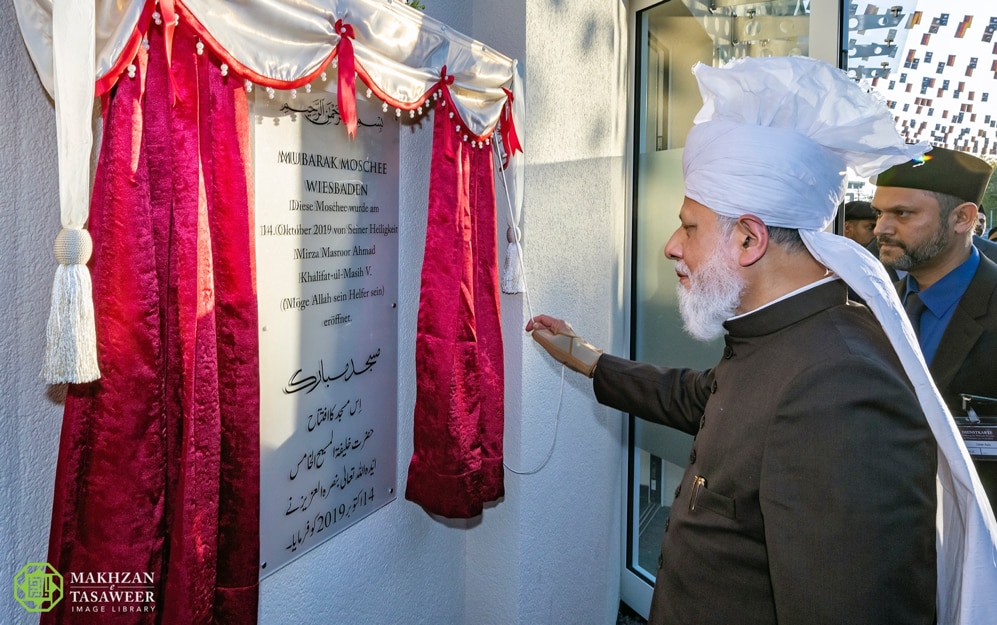 بسم اللہ الرحمن الرحیم
MUBARAK MOSCHEE
WIESBADEN
Diese Moschee wurde am
14. Oktober 2019 von Seiner Heiligkeit
Mirza Masroor Ahmad
Khalifat-ul-Masih V.
(Möge Allah sein Helfer sein)
eröffnet.
مسجد مبارک
اِس مسجد کا افتتاح
حضرت خلیفۃ المسیح الخامس
ایّدہ اللہ تعالیٰ بنصرہ العزیز نے
14 اکتوبر 2019 کو فرمایا۔
MAKHZAN
e
TASAWEER
IMAGE LIBRARY